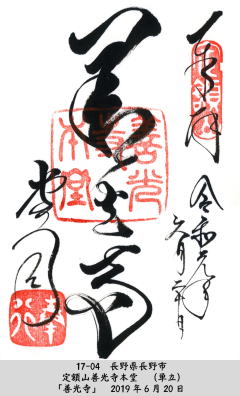 令和元年
六月二十日
善光寺
堂司
17-04　長野県長野市
定額山善光寺本堂　（単立）
「善光寺」　2019年6月20日